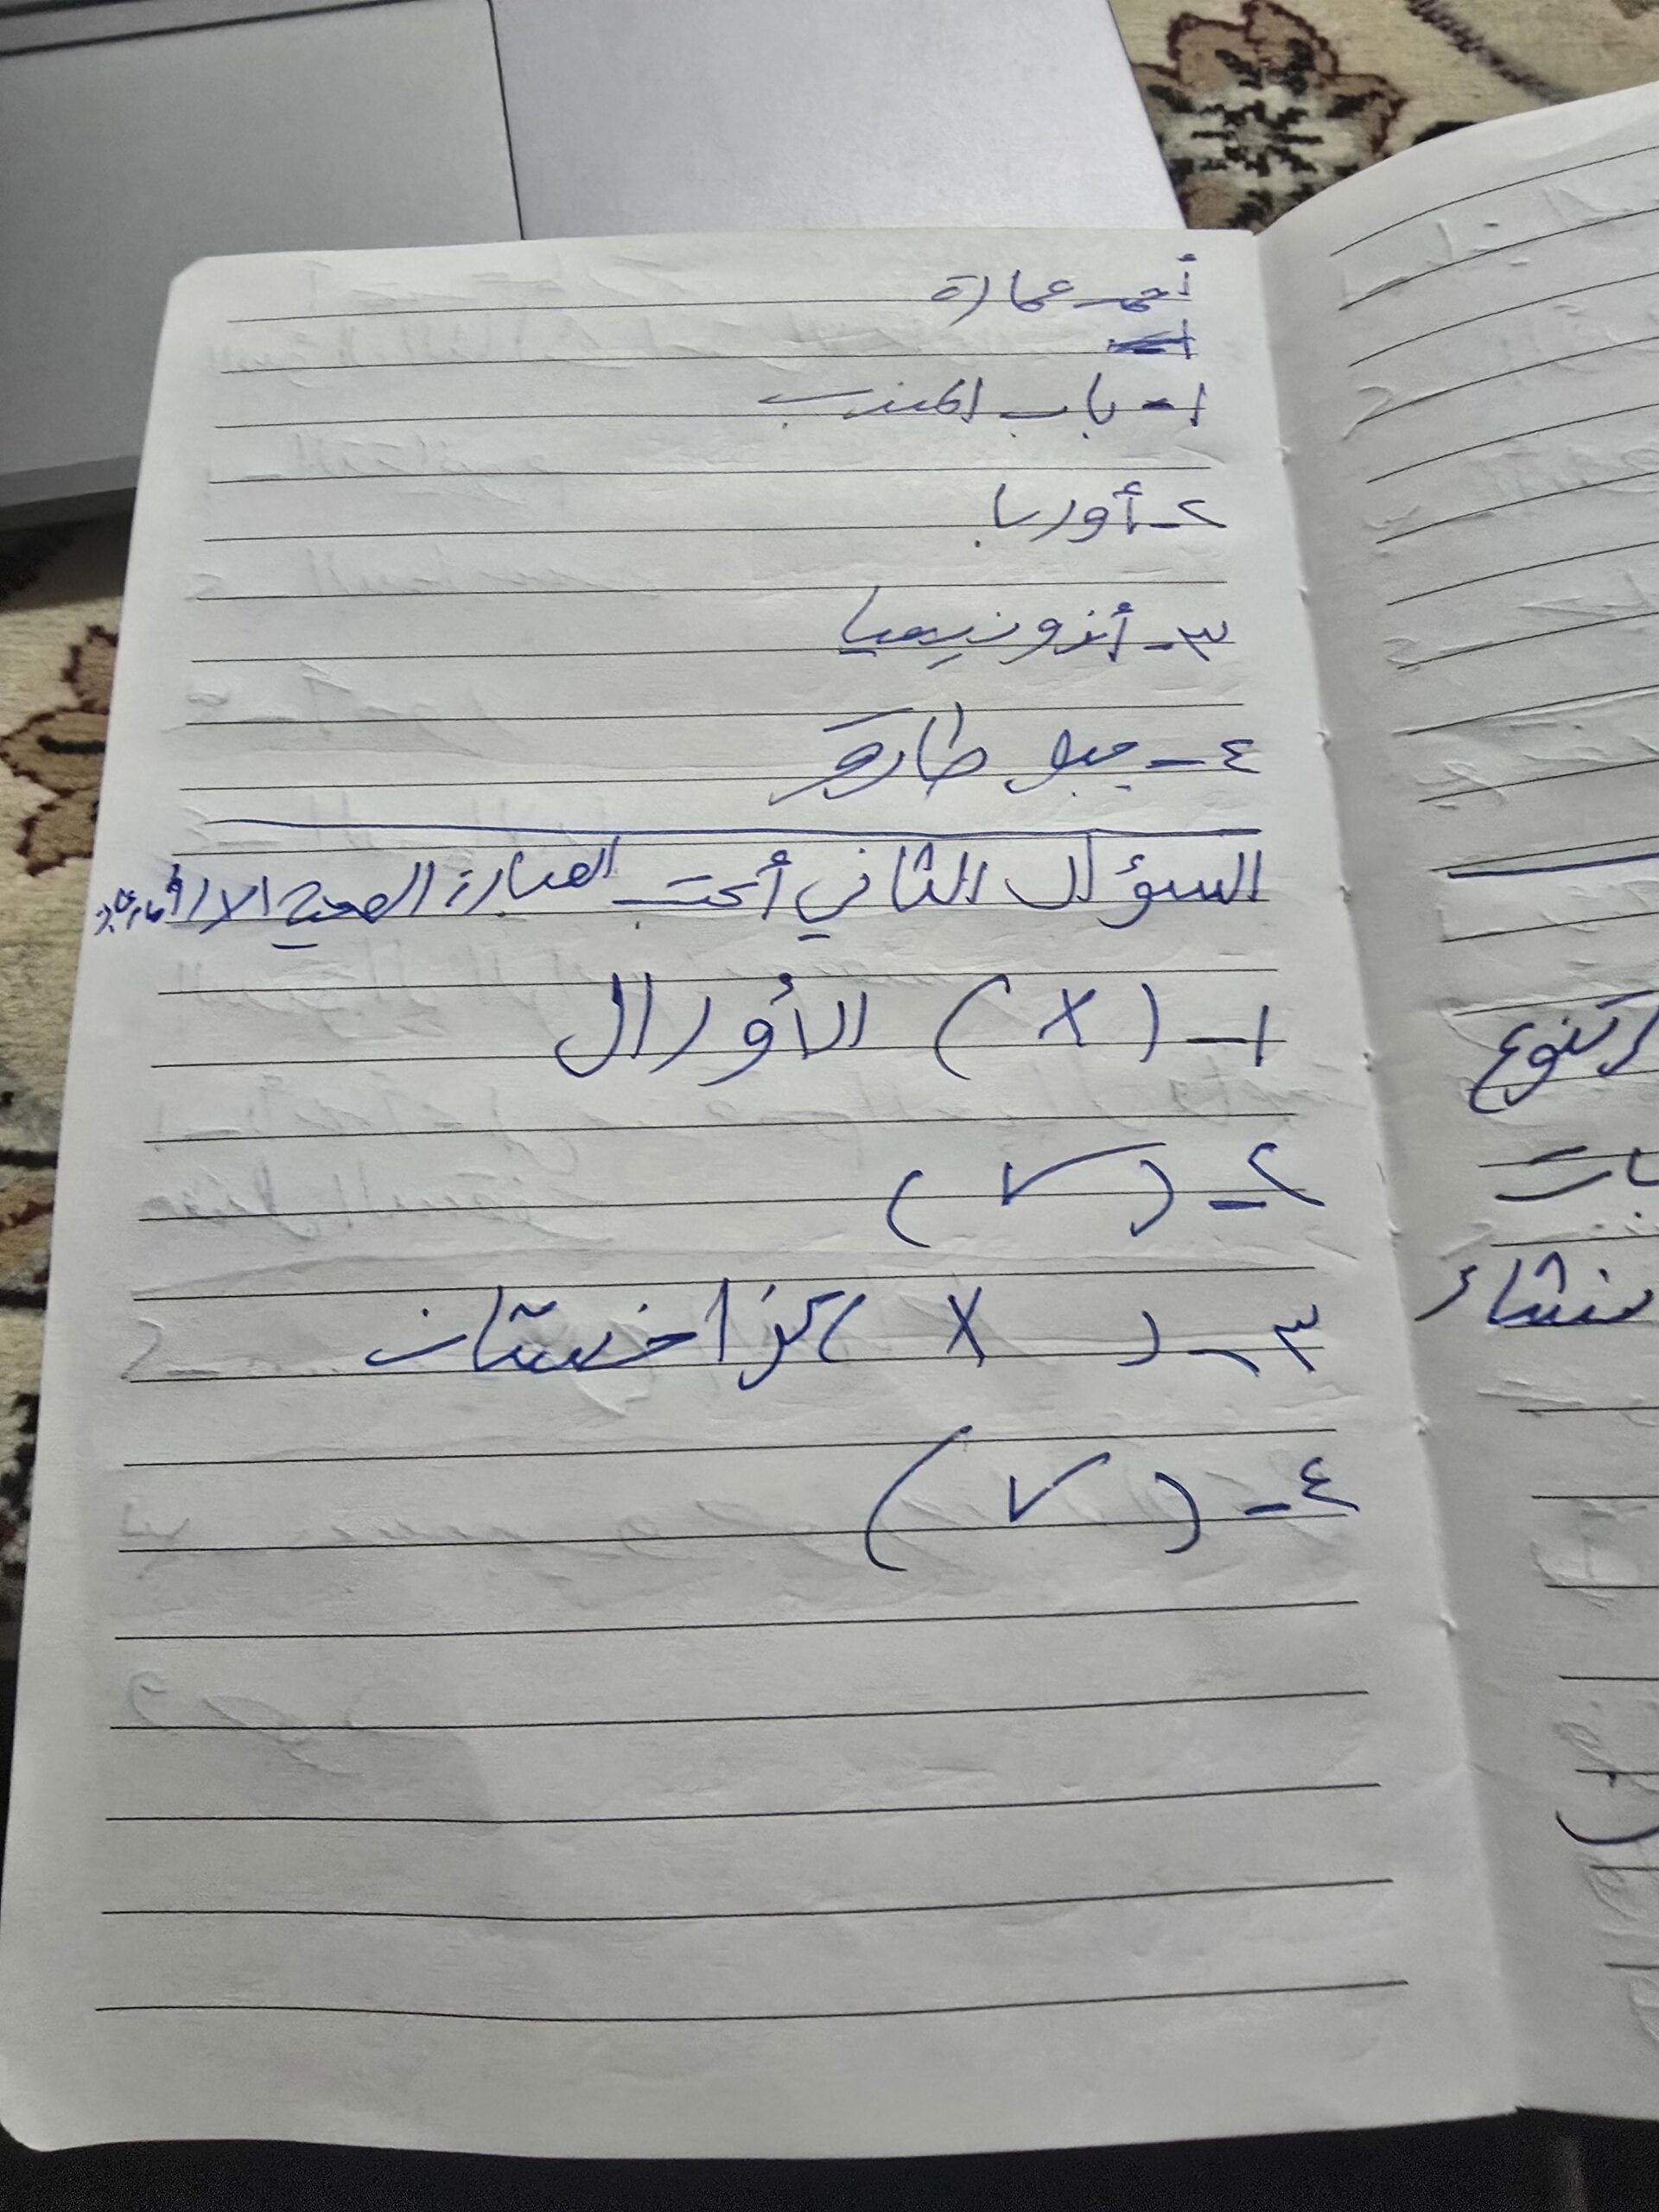 أحمد عمارة
١- باب المندب
٢- أوربا
٣- أندونيسيا
٤- جبل طارق
السؤال الثاني أكتب العبارة الصحيح
١- (X) الأورال
٢- (✓)
٣- (X) كزاخستان
٤- (✓)
تنوع
بات